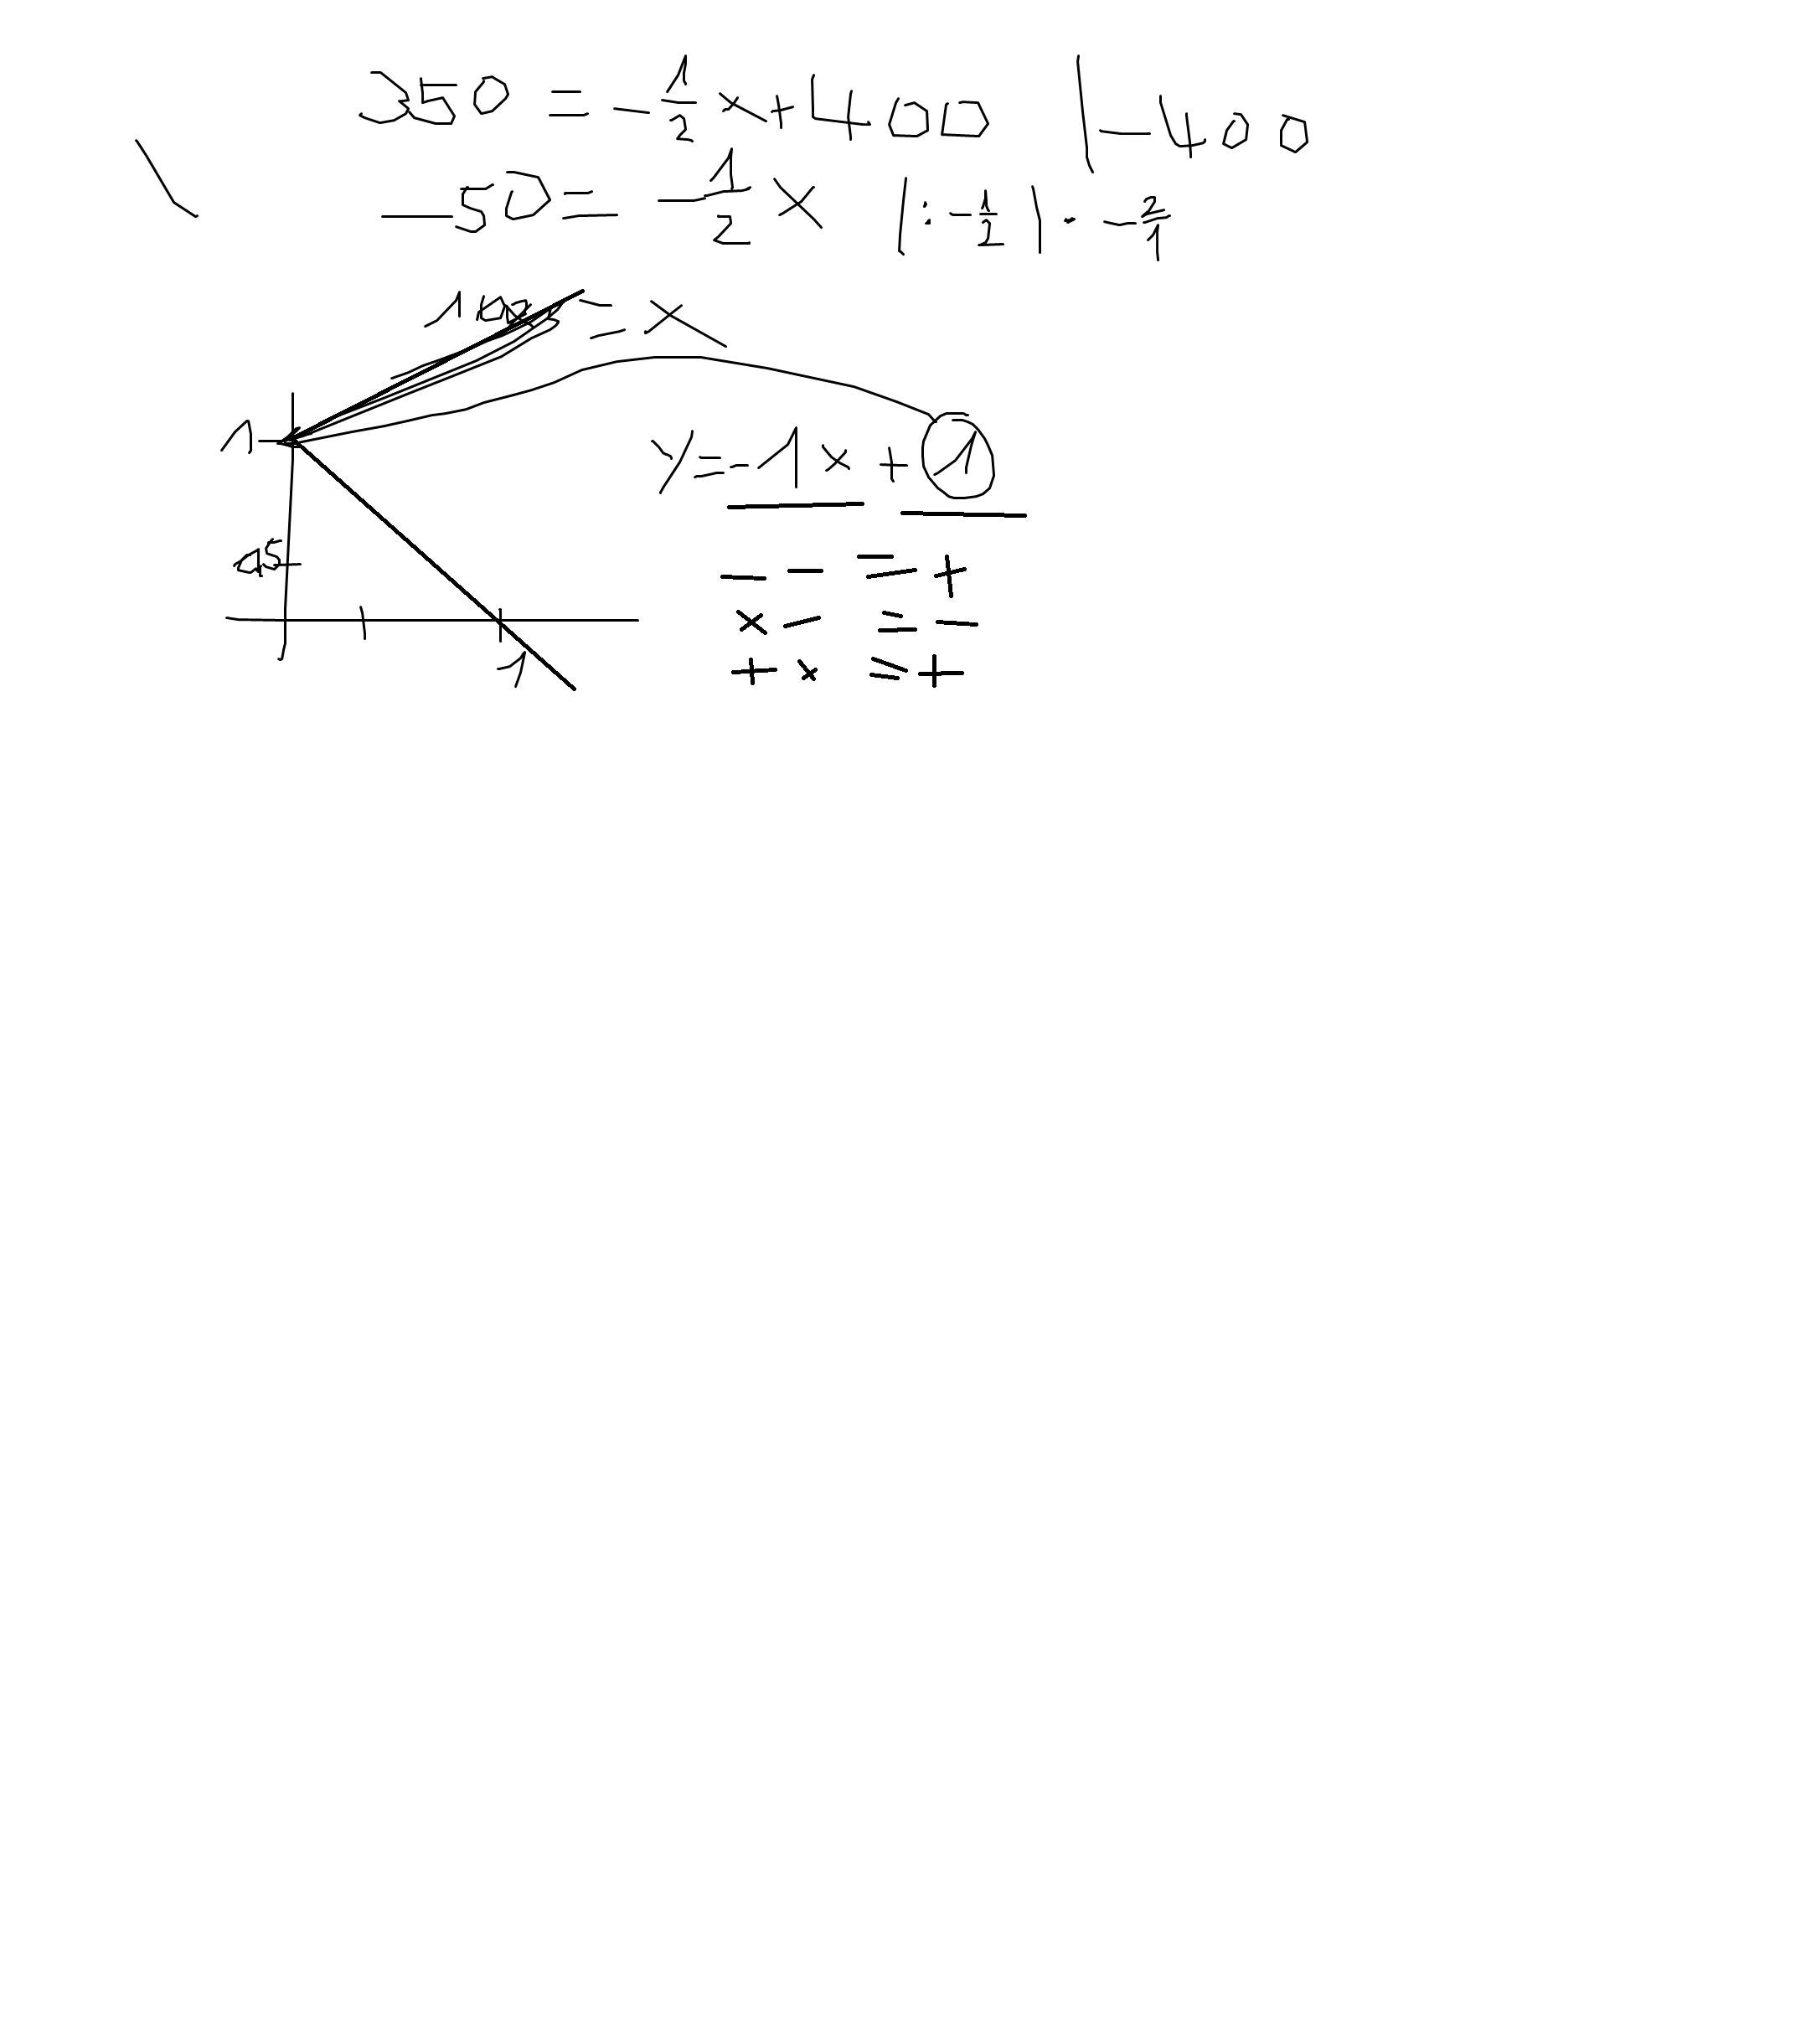 350 = -1/2 x + 400 | -400
-50 = -1/2 x | : -1/2 | · -2/1
100 = x
1
y = -1x + 1
0,5
1
- - = +
+ - = -
+ + = +